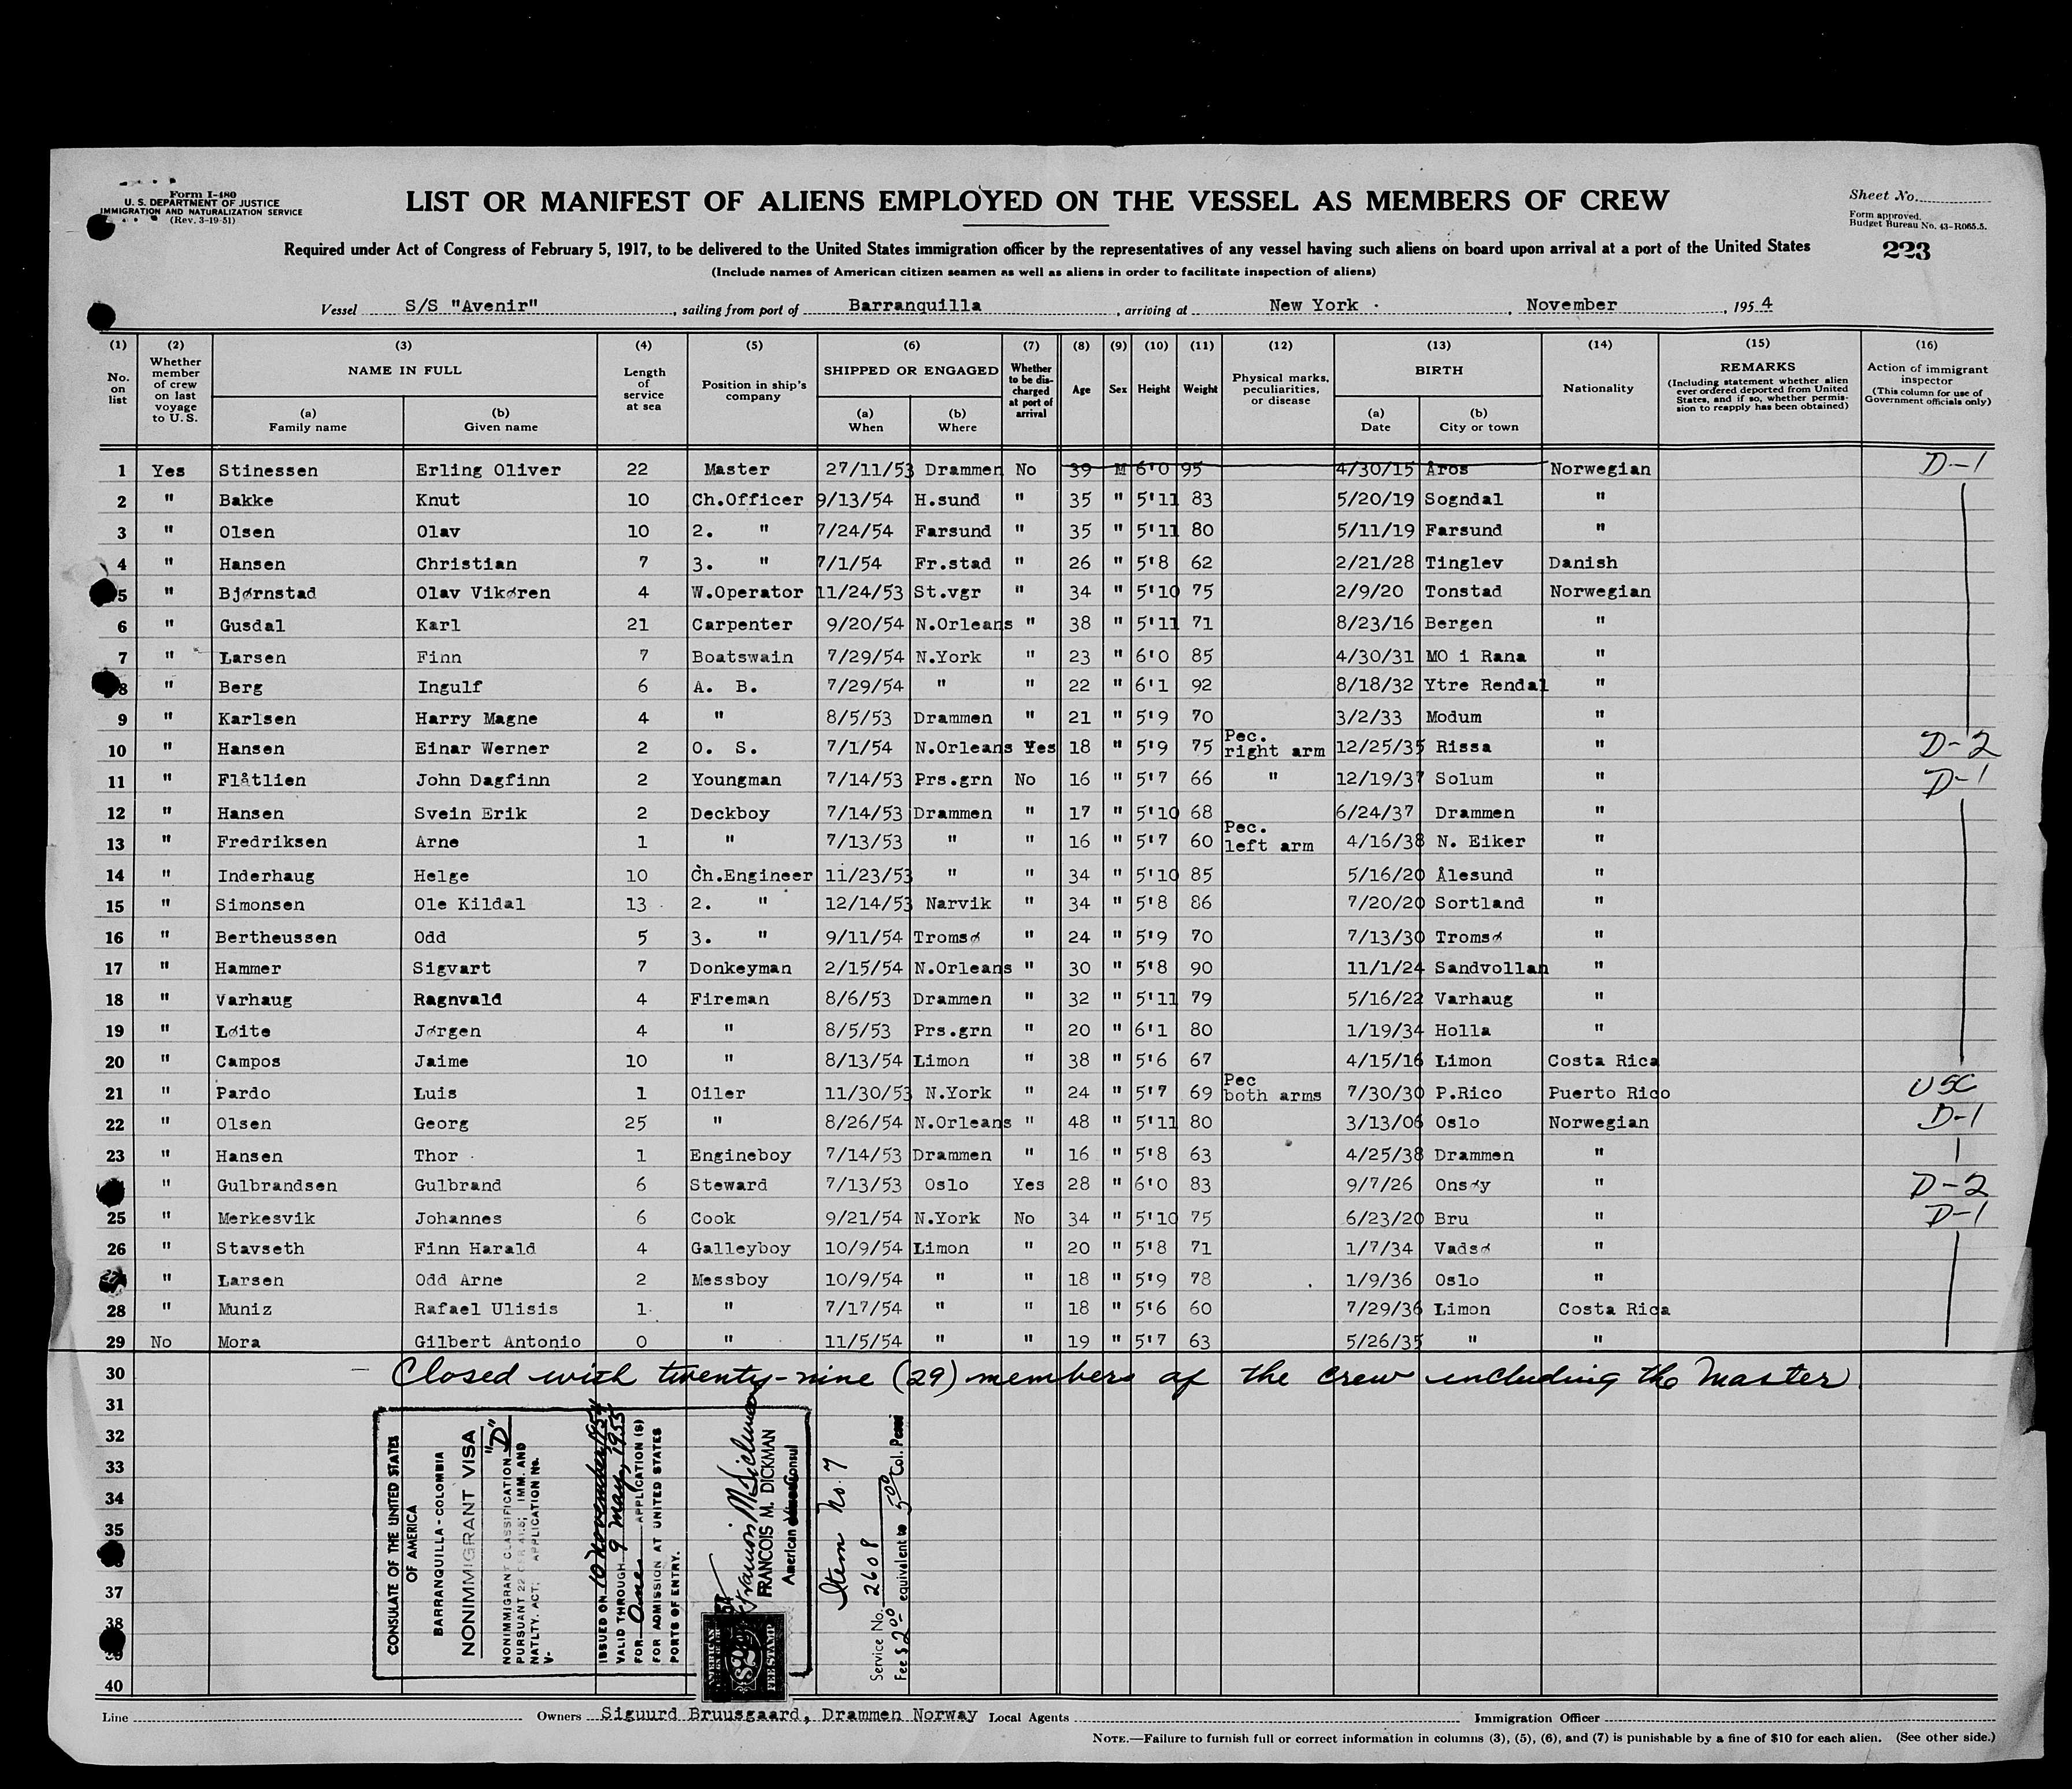 Form I-480
U. S. DEPARTMENT OF JUSTICE
IMMIGRATION AND NATURALIZATION SERVICE
(Rev. 3-19-51)
LIST OR MANIFEST OF ALIENS EMPLOYED ON THE VESSEL AS MEMBERS OF CREW
Sheet No.
Form approved.
Budget Bureau No. 43-R065.5.
223
Required under Act of Congress of February 5, 1917, to be delivered to the United States immigration officer by the representatives of any vessel having such aliens on board upon arrival at a port of the United States
(Include names of American citizen seamen as well as aliens in order to facilitate inspection of aliens)
Vessel S/S "Avenir", sailing from port of Barranquilla, arriving at New York, November, 1954
(1) (2) (3) (4) (5) (6) (7) (8) (9) (10) (11) (12) (13) (14) (15) (16)
No. on list
Whether member of crew on last voyage to U. S.
NAME IN FULL
(a) Family name
(b) Given name
Length of service at sea
Position in ship's company
SHIPPED OR ENGAGED
(a) When
(b) Where
Whether to be discharged at port of arrival
Age
Sex
Height
Weight
Physical marks, peculiarities, or disease
BIRTH
(a) Date
(b) City or town
Nationality
REMARKS
(Including statement whether alien ever ordered deported from United States, and if so, whether permission to reapply has been obtained)
Action of immigrant inspector
(This column for use of Government officials only)
1 Yes Stinessen Erling Oliver 22 Master 27/11/53 Drammen No 39 M 6'0 95 4/30/15 Åros Norwegian D-1
2 " Bakke Knut 10 Ch.Officer 9/13/54 H.sund " 35 " 5'11 83 5/20/19 Sogndal "
3 " Olsen Olav 10 2. " 7/24/54 Farsund " 35 " 5'11 80 5/11/19 Farsund "
4 " Hansen Christian 7 3. " 7/1/54 Fr.stad " 26 " 5'8 62 2/21/28 Tinglev Danish
5 " Bjørnstad Olav Vikøren 4 W.Operator 11/24/53 St.vgr " 34 " 5'10 75 2/9/20 Tonstad Norwegian
6 " Gusdal Karl 21 Carpenter 9/20/54 N.Orleans " 38 " 5'11 71 8/23/16 Bergen "
7 " Larsen Finn 7 Boatswain 7/29/54 N.York " 23 " 6'0 85 4/30/31 MO i Rana "
8 " Berg Ingulf 6 A. B. 7/29/54 " " 22 " 6'1 92 8/18/32 Ytre Rendal "
9 " Karlsen Harry Magne 4 " 8/5/53 Drammen " 21 " 5'9 70 3/2/33 Modum "
10 " Hansen Einar Werner 2 O. S. 7/1/54 N.Orleans Yes 18 " 5'9 75 Pec. right arm 12/25/35 Rissa " D-2
11 " Flåtlien John Dagfinn 2 Youngman 7/14/53 Prs.grn No 16 " 5'7 66 " 12/19/37 Solum " D-1
12 " Hansen Svein Erik 2 Deckboy 7/14/53 Drammen " 17 " 5'10 68 6/24/37 Drammen "
13 " Fredriksen Arne 1 " 7/13/53 " " 16 " 5'7 60 Pec. left arm 4/16/38 N. Eiker "
14 " Inderhaug Helge 10 Ch.Engineer 11/23/53 " " 34 " 5'10 85 5/16/20 Ålesund "
15 " Simonsen Ole Kildal 13 2. " 12/14/53 Narvik " 34 " 5'8 86 7/20/20 Sortland "
16 " Bertheussen Odd 5 3. " 9/11/54 Tromsø " 24 " 5'9 70 7/13/30 Tromsø "
17 " Hammer Sigvart 7 Donkeyman 2/15/54 N.Orleans " 30 " 5'8 90 11/1/24 Sandvollan "
18 " Varhaug Ragnvald 4 Fireman 8/6/53 Drammen " 32 " 5'11 79 5/16/22 Varhaug "
19 " Løite Jørgen 4 " 8/5/53 Prs.grn " 20 " 6'1 80 1/19/34 Holla "
20 " Campos Jaime 10 " 8/13/54 Limon " 38 " 5'6 67 4/15/16 Limon Costa Rica
21 " Pardo Luis 1 Oiler 11/30/53 N.York " 24 " 5'7 69 Pec both arms 7/30/30 P.Rico Puerto Rico USC
22 " Olsen Georg 25 " 8/26/54 N.Orleans " 48 " 5'11 80 3/13/06 Oslo Norwegian D-1
23 " Hansen Thor 1 Engineboy 7/14/53 Drammen " 16 " 5'8 63 4/25/38 Drammen "
" Gulbrandsen Gulbrand 6 Steward 7/13/53 Oslo Yes 28 " 6'0 83 9/7/26 Onsøy " D-2
25 " Merkesvik Johannes 6 Cook 9/21/54 N.York No 34 " 5'10 75 6/23/20 Bru " D-1
26 " Stavseth Finn Harald 4 Galleyboy 10/9/54 Limon " 20 " 5'8 71 1/7/34 Vadsø "
27 " Larsen Odd Arne 2 Messboy 10/9/54 " " 18 " 5'9 78 1/9/36 Oslo "
28 " Muniz Rafael Ulisis 1 " 7/17/54 " " 18 " 5'6 60 7/29/36 Limon Costa Rica
29 No Mora Gilbert Antonio 0 " 11/5/54 " " 19 " 5'7 63 5/26/35 " "
30 Closed with twenty-nine (29) members of the crew including the Master
31
32
33
34
35
37
38
40
CONSULATE OF THE UNITED STATES
OF AMERICA
BARRANQUILLA - COLOMBIA
NONIMMIGRANT VISA
NONIMMIGRANT CLASSIFICATION "D"
PURSUANT 22 CFR 41.5; IMM. AND
NATLTY. ACT; APPLICATION No.
V-
ISSUED ON 10 November 1954
VALID THROUGH 9 May, 1955
FOR One APPLICATION (S)
FOR ADMISSION AT UNITED STATES
PORTS OF ENTRY.
Francois M. Dickman
FRANCOIS M. DICKMAN
American Vice Consul
Item No. 7
Service No. 2608
Fee $ 2.00 equivalent to 5.00 Col. Pesos
AMERICAN
FEE STAMP
Line Owners Siguurd Bruusgaard, Drammen Norway Local Agents Immigration Officer
NOTE.—Failure to furnish full or correct information in columns (3), (5), (6), and (7) is punishable by a fine of $10 for each alien. (See other side.)